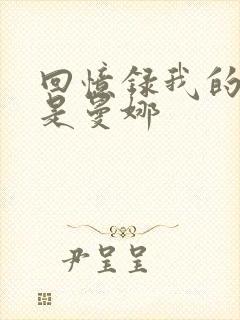 回憶録我的
是曼娜
尹呈呈